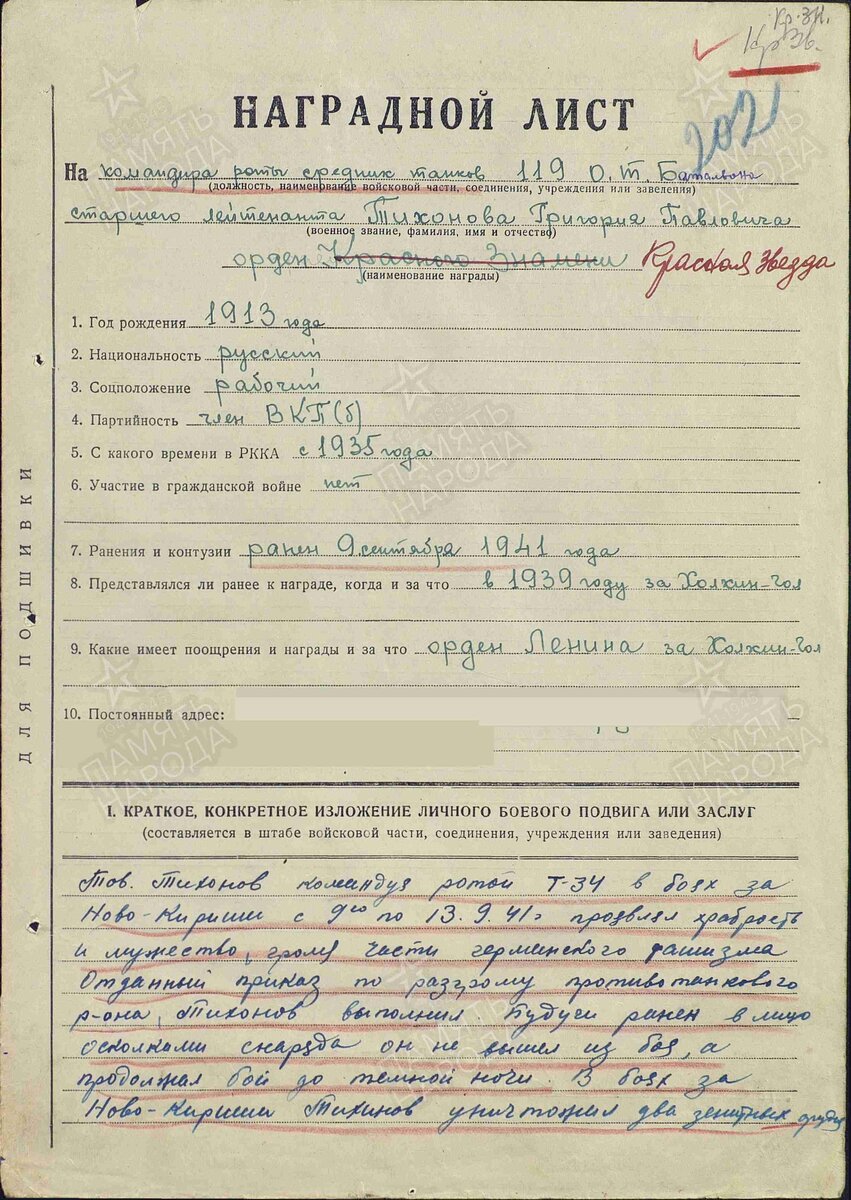 Кр. Зн.
Кр Зв.
202
НАГРАДНОЙ ЛИСТ
На командира роты средних танков 119 О.Т. Батальона
(должность, наименование войсковой части, соединения, учреждения или заведения)
старшего лейтенанта Тихонова Григория Павловича
(военное звание, фамилия, имя и отчество)
орден Красного Знамени Красная звезда
(наименование награды)
1. Год рождения 1913 года
2. Национальность русский
3. Соцположение рабочий
4. Партийность член ВКП(б)
5. С какого времени в РККА с 1935 года
6. Участие в гражданской войне нет
7. Ранения и контузии ранен 9 сентября 1941 года
8. Представлялся ли ранее к награде, когда и за что в 1939 году за Холхин-Гол
9. Какие имеет поощрения и награды и за что орден Ленина за Холхин-Гол
10. Постоянный адрес:
ДЛЯ ПОДШИВКИ
I. КРАТКОЕ, КОНКРЕТНОЕ ИЗЛОЖЕНИЕ ЛИЧНОГО БОЕВОГО ПОДВИГА ИЛИ ЗАСЛУГ
(составляется в штабе войсковой части, соединения, учреждения или заведения)
Тов. Тихонов командуя ротой Т-34 в боях за
Ново-Кириши с 9го по 13.9.41г проявлял храбрость
и мужество, громя части германского фашизма
Отданный приказ по разгрому противотанкового
р-она, Тихонов выполнил. Будучи ранен в лицо
осколками снаряда он не вышел из боя, а
продолжал бой до темной ночи. В боях за
Ново-Кириши Тихинов уничтожил два зенитных орудия
ПАМЯТЬ НАРОДА